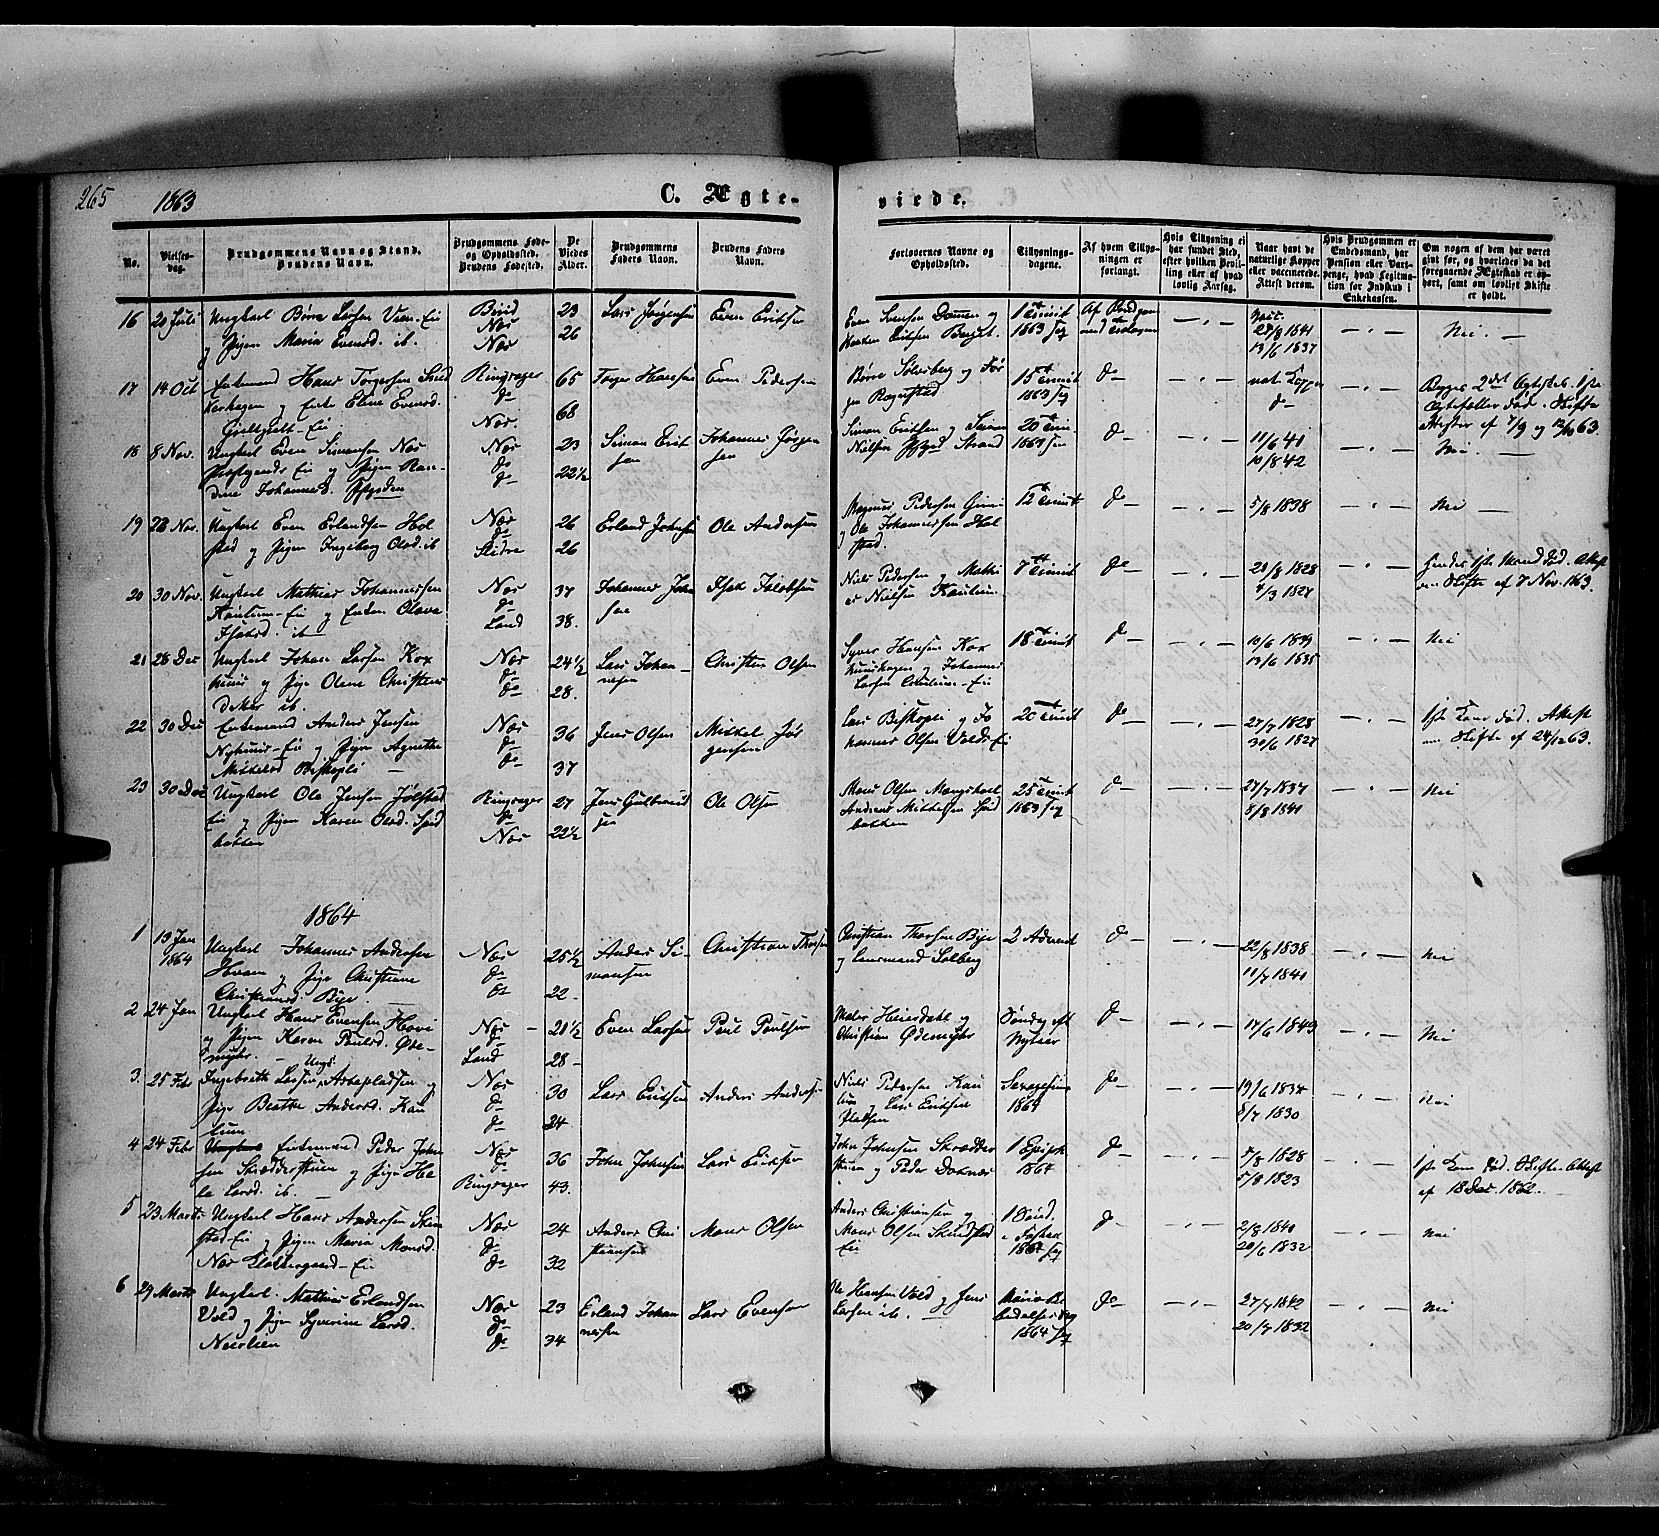 265
1863
C. Ægte-
viede.
No.
Vielses-
dag.
Brudgommens Navn og Stand.
Brudens Navn.
Brudgommens Føde-
og Opholdssted.
Brudens Fødested.
De
Viedes
Alder.
Brudgommens
Faders Navn.
Brudens Faders
Navn.
Forlovernes Navne og
Opholdssted.
Tillysnings-
dagene.
Af hvem Tillys-
ningen er
forlangt.
Hvis Tillysning ei
har fundet Sted,
efter hvilken Bevil-
ling eller af hvad
lovlig Aarsag.
Naar havt de
naturlige Kopper
eller vaccinerede.
Attest derom.
Hvis Brudgommen er
Embedsmand, har
Pension eller Vart-
penge, hvad Legitima-
tion for Indskud i
Enkekassen.
Om nogen af dem har været
gift før, og hvorledes da det
foregaaende Ægteskab er op-
hørt, samt om lovligt Skifte
er holdt.
16 20 Juli Ungkarl Børre Larsen Veen-Ei
og Pigen Maria Evensd. ib.
Birid
Næs
Næs
23
26
Lars Jørgensen
Even Eriksen
Even Svensen
1863
28/8 1841
13/6 1837
Nei.
17 14 Oct Enkemand Hans Torgersen
og Enke Eline Evensd.
Ringsager
do
Næs.
65
68
Torger Hansen
Even Pedersen
Børre Solberg og
15 Trinit
1863
do
nat. Kopper
do
Begges 2det Ægtesk. 1ste
Ægtefæller død. Skifte
Attester af 7/9 og 12/10 63.
18 8 Nov. Ungkarl Even Simensen Næs
Præstegaards Ei og Pigen Ran-
dine Johannesd.
Næs
do
do
23
22½
Simen Erik
sen
Johannes Jørgen
sen
Simen Eriksen og
Nielsen
20 Trin
1863
do
11/6 41
10/8 42
Nei.
19 Nov. Ungkarl Even Erlandsen Hol
stad og Pigen Ingeborg Olsd. ib
Næs
do
Slidre
26
26
Erland Johnsen
Ole Andersen
Magnus Pedersen
og Ole Johannessen Hol
stad.
12 Trinit
do
5/8 1838
Nei
20 30 Nov. Ungkarl Mathias Johannessen
Kaulum-Ei og Enken Olava
Isaksd. ib
Næs
do
Land
37
38.
Johannes John
sen
Isak Jakobsen
Niels Pedersen og Mathi
as Nielsen Kaulum.
7 Trinit
do
28/8 1828
4/3 1827
Hendes 1ste Mand død. Attest
om Skifte af 7 Nov. 1863.
21 26 Dec Ungkarl Johan Larsen Kox
huus og Pige Olene Christens
datter ib.
Næs
do
do
24½
28.
Lars Johan-
nesen
Christen Olsen
Syver Hansen Kox
huushagen og Johannes
Larsen
18 Trinit
do
10/6 1839
13/6 1835
Nei
22 30 Dec Enkemand Anders Jensen
Nyhuus-Ei og Pigen Agnethe
Mikkelsd Biskopli
Næs
do
do
36
37
Jens Olsen
Mikkel Jør
gensen
Lars Biskopli og Jo
hannes Olsen Volds Ei
20 Trinit
do
27/7 1828
30/6 1827
1ste Kone død. Attest
om Skifte af 24/12 63.
23 30 Dec Ungkarl Ole Jensen Jølstad
Ei og Pigen Karen Olsd.
bakken
Ringsager
do
Næs
27
22½
Jens Gulbrand
sen
Ole Olsen
Mons Olsen
Andreas Mikkelsen
bakken
25 Trinit
1863
do
27/7 1837
8/8 1841
Nei
1864
1 13 Jan
1864
Ungkarl Johannes Andersen
Hvam og Pige Christiane
Christiansd. Bye.
Næs
do
do
25½
22
Anders Si-
monsen
Christian Thorsen
Christian Thorsen Bye
og Lensmand Solberg
2 Advent
do
22/8 1838
11/7 1841
Nei
2 24 Jan Ungkarl Hans Evensen Hovi
og Pigen Karen Paulsd. Øde-
Næs
do
Land
21½
28
Even Larsen
Paul Paulsen
Maler Heierdahl og
Christian
Søndag eft
Nytaar
do
14/6 1843
Nei
3. 25 Febr Ungk. Ingebreth Larsen, Arbepladsen og
Pige Beathe Andersd. Kau
lum
Næs
do
do
30
24
Lars Eriksen
Anders Anders
Niels Pedersen Kau
lum og Lars Eriksen
Pladsen
Sexagesima
1864
do
19/6 1834
8/7 1830
Nei
4 24 Febr Enkemand Peder John
sen Skrædderstuen og Pige He
le Larsd. ib.
Næs
do
Ringsager
36
43.
John Johnsen
Lars Eriksen
John Johnsen Skrædder
stuen og Peder
1 Epiph
1864
do
5/8 1828
5/8 1823
1ste Kone død. Skifte Attest
af 18 Dec. 1862.
5 23 Marts Ungkarl Hans Andersen
stad-Ei og Pigen Maria Monsd.
Næs
Næs
do
do
24
32
Anders Chri
stiansen
Mons Olsen
Anders Christiansen og
Mons Olsen
Ei
1 Sønd.
i Fasten
1864
do
2/8 1840
20/6 1832
Nei
6 29 Marts Ungkarl Mathias Erlandsen
Vold og Pigen Syverine Larsd.
Næs
do
do
23
34
Erland Johan
nesen
Lars Evensen
Ole Hansen Vold og Jens
Larsen ib.
Mariæ Be
budelsesdag
1864
do
27/7 1842
20/7 1832
Nei